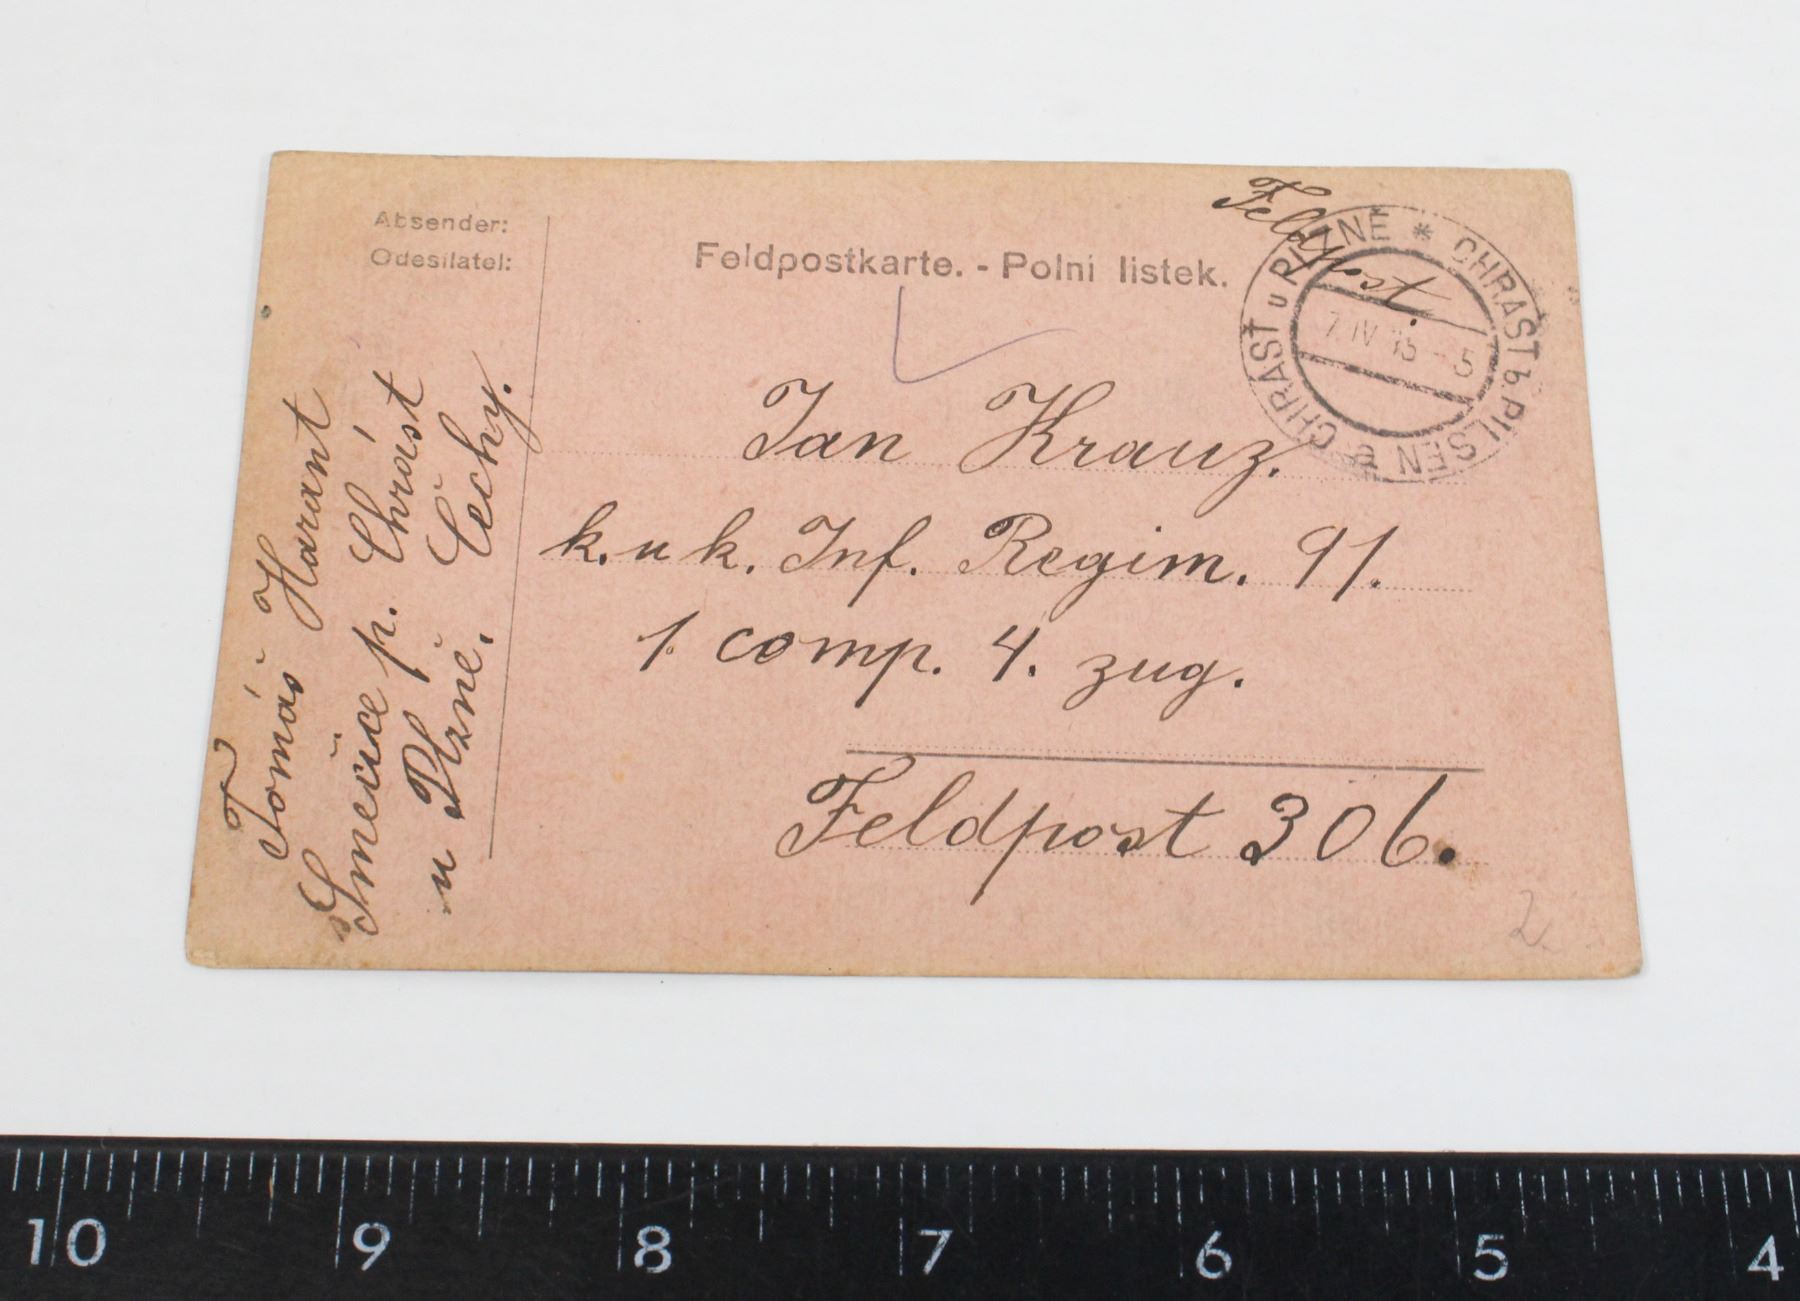 Absender:
Odesílatel:
Feldpostkarte. - Polní lístek.
Feldpost.
CHRÁST u PLZNĚ * CHRAST b. PILSEN
7. IV 15 - 5
Tomáš Harant
Smečice p. Chrást
u Plzně. Čechy.
Jan Krauz.
k. u k. Inf. Regim. 91.
1. comp. 4. zug.
Feldpost 306.
2.
10 9 8 7 6 5 4